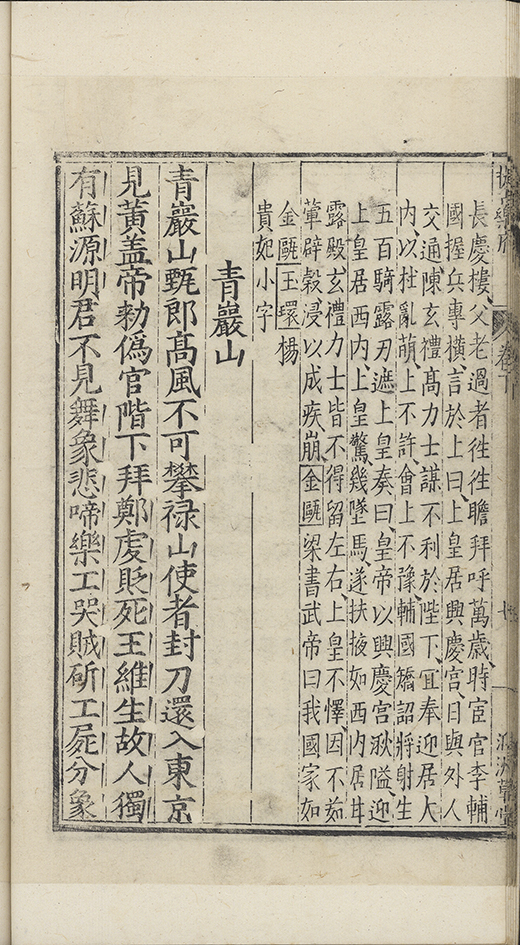 卷下
長慶樓、父老過者徃徃瞻拜呼萬歲、時宦官李輔
國握兵專橫、言於上曰、上皇居興慶宫日與外人
交通、陳玄禮高力士謀不利於陛下、宜奉迎居大
内、以杜亂萌、上不許、會上不豫、輔國矯詔將射生
五百騎露刃遮上皇奏曰、皇帝以興慶宫湫隘迎
上皇居西内、上皇驚幾墜馬、遂扶掖如西内居甘
露殿玄禮力士皆不得留左右、上皇不懌、因不茹
葷辟穀浸以成疾崩、金甌梁書武帝曰我國家如
金甌玉環楊
貴妃小字
青巖山
青巖山甄郎高風不可攀祿山使者封刀還入東京
見黃盖帝勑僞官階下拜鄭虔貶死王維生故人獨
有蘇源明君不見舞象悲啼樂工哭賊斫工屍分象